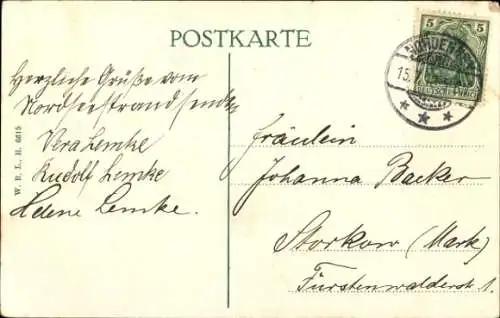 POSTKARTE
5 5
15.
Herzliche Grüße vom
Nordseestrand sendet
Vera Lemke
Rudolf Lemke
Helene Lemke.
W. B. L. H. 6615
Fräulein
Johanna Backer
Storkow (Mark)
Fürstenwalderstr 1.